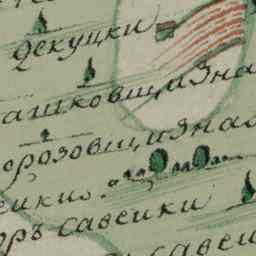 декуцки
ашковщизна
орозовщизна
сики
оръ савеики
савеи